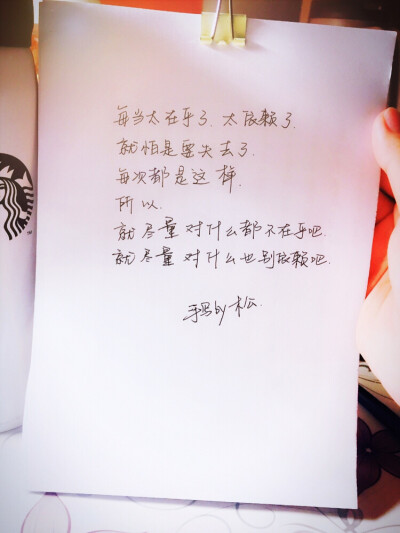 每当太在乎了.太依赖了.
就怕是要失去了.
每次都是这样.
所以.
就尽量对什么都不在乎吧.
就尽量对什么也别依赖吧.
手写by 松.